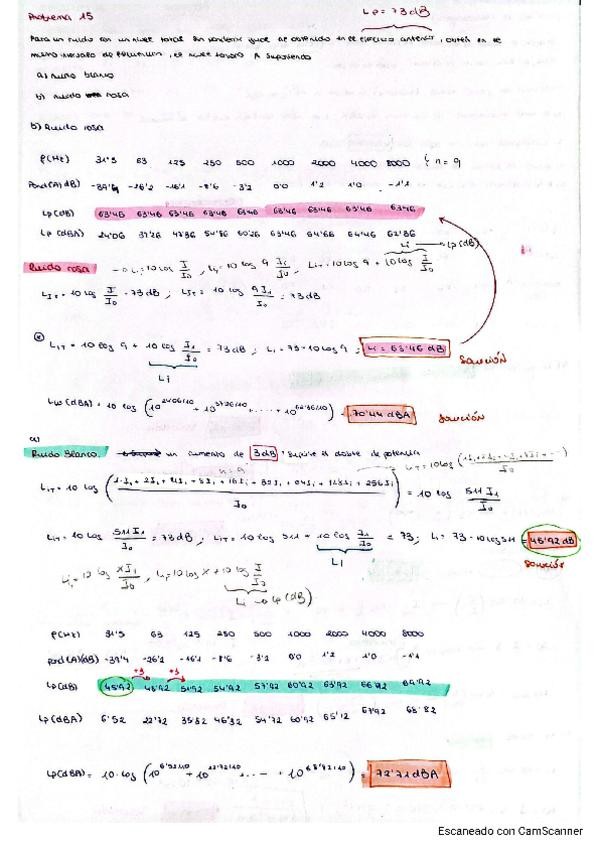 Problema 15
Lp = 73 dB
Para un ruido con un nivel total sin ponderar igual al obtenido en el ejercicio anterior, obtén en el
mismo intervalo de frecuencias, el nivel total A suponiendo
a) ruido blanco
b) ruido rosa
b) Ruido rosa
f(Hz) 31'5 63 125 250 500 1000 2000 4000 8000 } n = 9
Pond(A)(dB) -39'4 -26'2 -16'1 -8'6 -3'2 0'0 1'2 1'0 -1'1
Lp(dB) 63'46 63'46 63'46 63'46 63'46 63'46 63'46 63'46 63'46
Lp(dBA) 24'06 37'26 47'36 54'86 60'26 63'46 64'66 64'46 62'36
Li → Lp(dB)
Ruido rosa → Li = 10 log I/I0, Li = 10 log 9 Ii/I0, LiT = 10 log 9 + 10 log I/I0
LIT = 10 log I/I0 = 73 dB; LIT = 10 log 9I1/I0 = 73 dB
LIT = 10 log 9 + 10 log I1/I0 = 73 dB; Li = 73 - 10 log 9; Li = 63'46 dB solución
Li
(dBA) = 10 log (10^24'06/10 + 10^37'26/10 + ... + 10^62'36/10) = 70'44 dBA solución
a)
Ruido Blanco. un aumento de 3dB, supone el doble de potencia
n = 9
LIT = 10 log (1·I1 + 2I1 + 4I1 + 8I1 + 16I1 + 32I1 + 64I1 + 128I1 + 256I1 / I0) = 10 log 511 I1/I0
LIT = 10 log 511 I1/I0 = 73 dB; LIT = 10 log 511 + 10 log I1/I0 = 73; Li = 73 - 10 log 511 = 45'92 dB
Li solución
Li = 10 log x I1/I0, Li = 10 log x + 10 log I/I0
Li → Lp(dB)
f(Hz) 31'5 63 125 250 500 1000 2000 4000 8000
pond(A)(dB) -39'4 -26'2 -16'1 -8'6 -3'2 0'0 1'2 1'0 -1'1
+3 +3
Lp(dB) 45'92 48'92 51'92 54'92 57'92 60'92 63'92 66'92 69'92
Lp(dBA) 6'52 22'72 35'82 46'32 54'72 60'92 65'12 67'92 68'82
Lp(dBA) = 10·log (10^6'52/10 + 10^22'72/10 ... + 10^68'82/10) = 72'71 dBA
Escaneado con CamScanner